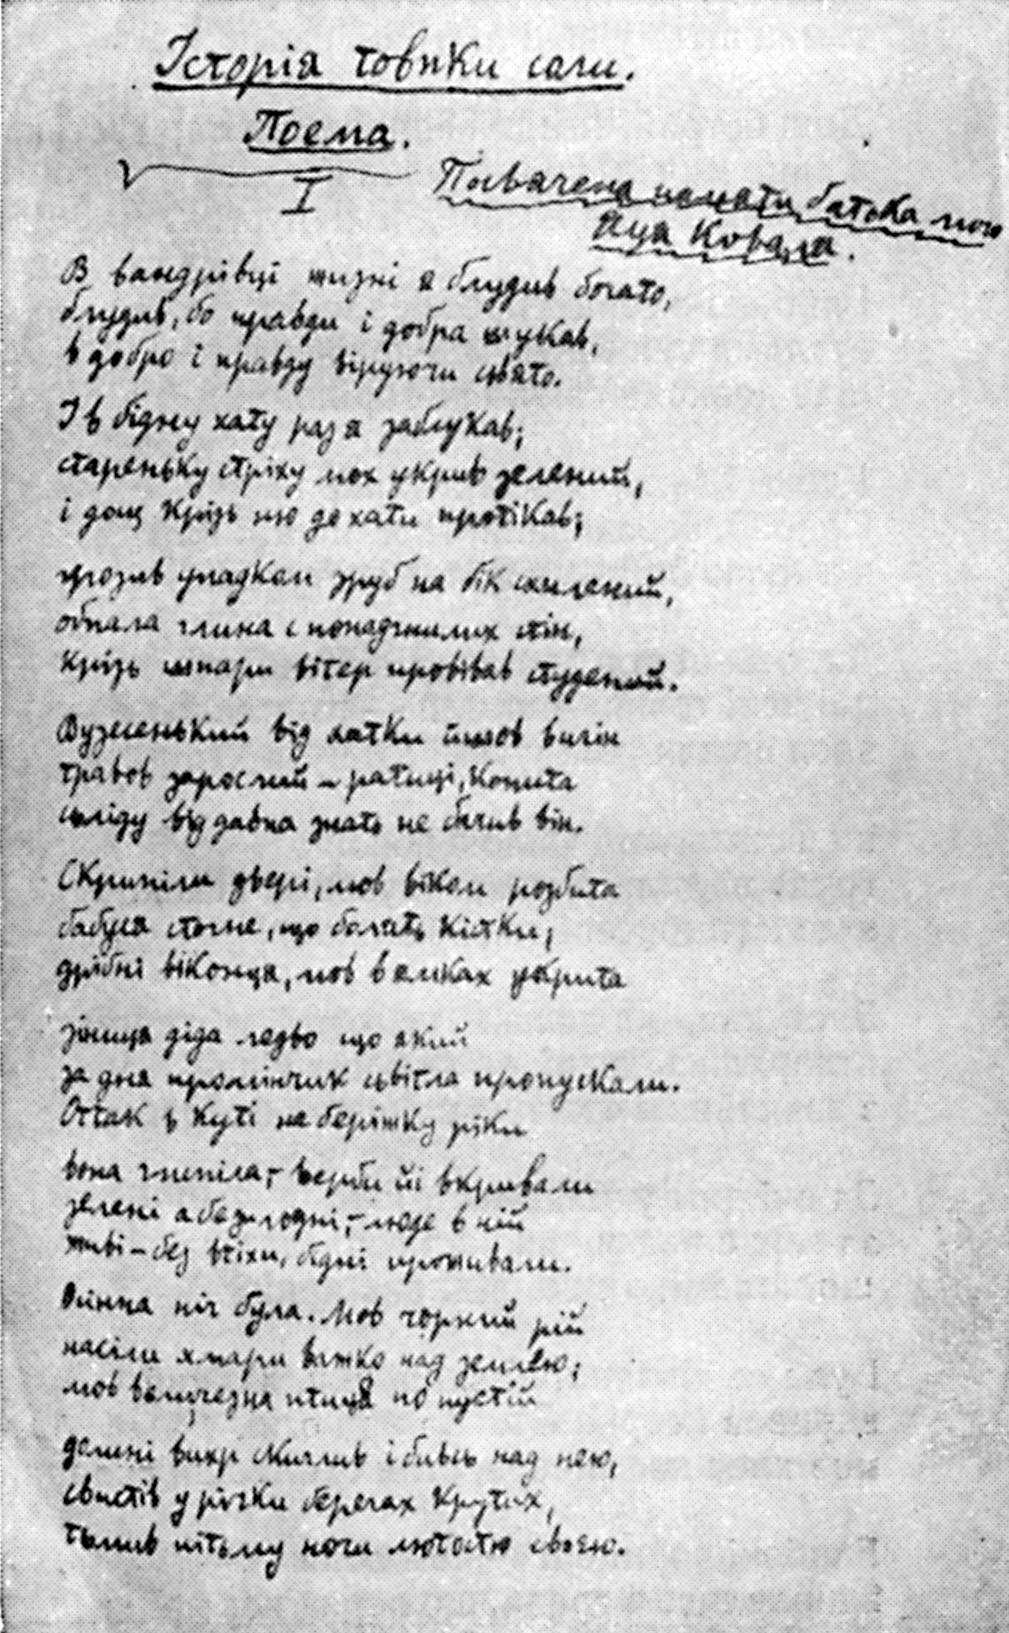 Історія товпки соли.
Поема.
I
Посвячена памяти батька мого
Яця Коваля.
В вандрівці жизні я блудив богато,
блудив, бо правди і добра шукав,
в добро і правду віруючи свято.
І в бідну хату раз я заблукав;
стареньку стріху мох укрив зелений,
і дощ крізь ню до хати протікав;
грозив упадком зруб на бік схилений,
обпала глина с понадгнилих стін,
крізь шпари вітер провівав студений.
Вузесенький від хатки йшов вигін
травов зарослий – ратиці, копита
сьліду від давна знать не бачив він.
Скрипіли двері, мов віком розбита
бабуся стогне, що болять кістки;
дрібні віконця, мов в ямках укрита
зіниця діда ледво що який
за дня промінчик сьвітла пропускали.
Оттак в куті на беріжку ріки
вона гнепіла, – верби йі вкривали
зелені а безплодні, – люде в ній
живі – без втіхи, бідні проживали.
Осіння ніч була. Мов чорний рій
насіли хмари важко над землею;
мов величезна птиця по пустій
долині вихр и бивсь над нею,
свистів у річки берегах крутих,
тьмив пітьму ночи лютостю своєю.